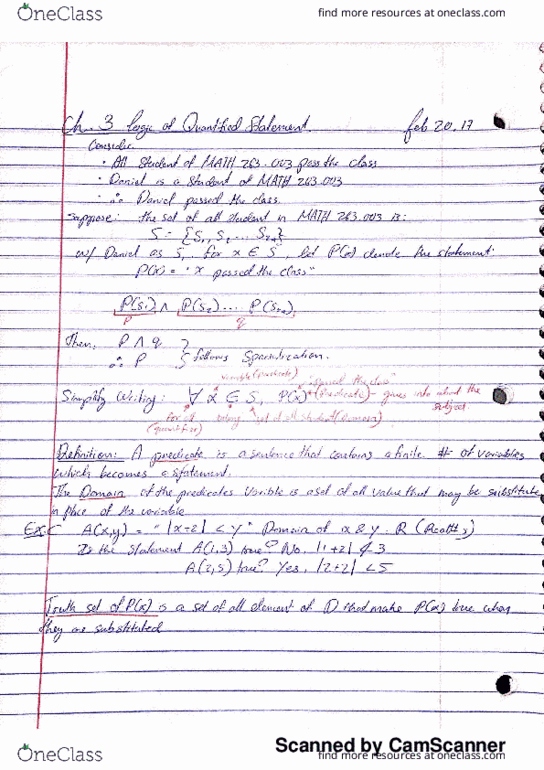 OneClass find more resources at oneclass.com
Ch. 3 Logic of Quantified Statement. Feb 20.17
Consider
· All Student of MATH 263.003 pass the class
· Daniel is a Student of MATH 263.003
· ∴ Daniel passed the class.
Suppose: the set of all student in MATH 263.003 is:
S = {S₁, S₂ ... }
w/ Daniel as S, for x ∈ S, let P(x) denote the statement:
P(x) = "x passed the class"
P(s₁) ∧ P(s₂) ...
P q
Then: P ∧ q
∴ P } follows Specialization.
variable (predicate) "passed the class"
Simplify Writing: ∀ x ∈ S, P(x) (predicate) - gives info about the subject.
for all set of all student (Domain)
(quantifier)
Definition: A predicate is a sentence that contains a finite # of variables
which becomes a statement.
The Domain of the predicates Varible is a set of all value that may be substitute
in place of the variable
A(x,y) = "|x+2| < y" Domain of x & y · R
Is the statement A(1,3) true? No, |1+2| ≮ 3
A(2,5) true? Yes, |2+2| < 5
Truth set of P(x) is a set of all element of D that make P(x) true when
they are substituted
Scanned by CamScanner
OneClass find more resources at oneclass.com